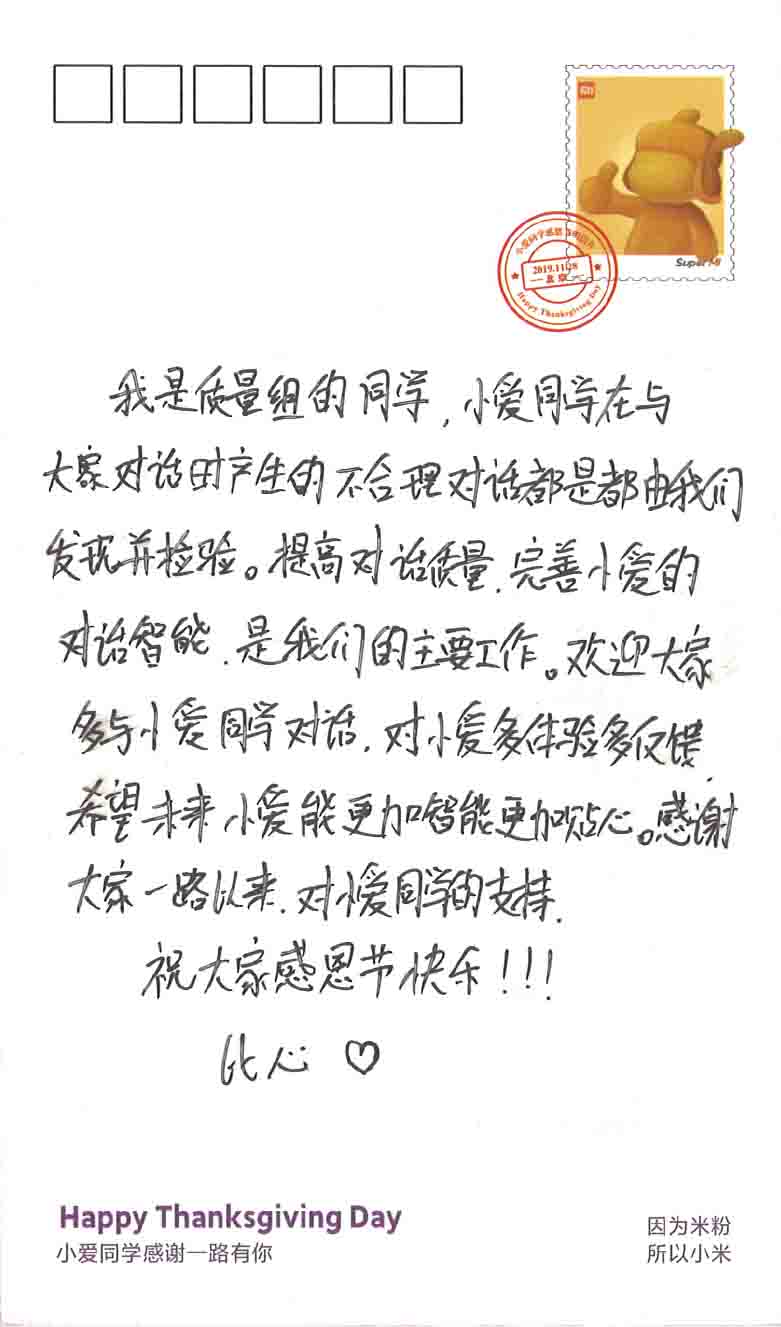 小爱同学感恩节明信片
2019.11.28
北京
Happy Thanksgiving Day
Super Mi
我是质量组的同学,小爱同学在与
大家对话时产生的不合理对话都是都由我们
发现并检验。提高对话质量,完善小爱的
对话智能,是我们的主要工作。欢迎大家
多与小爱同学对话,对小爱多体验多反馈,
希望未来小爱能更加智能更加贴心。感谢
大家一路以来,对小爱同学的支持,
祝大家感恩节快乐!!!
比心 ♡
Happy Thanksgiving Day
小爱同学感谢一路有你
因为米粉
所以小米